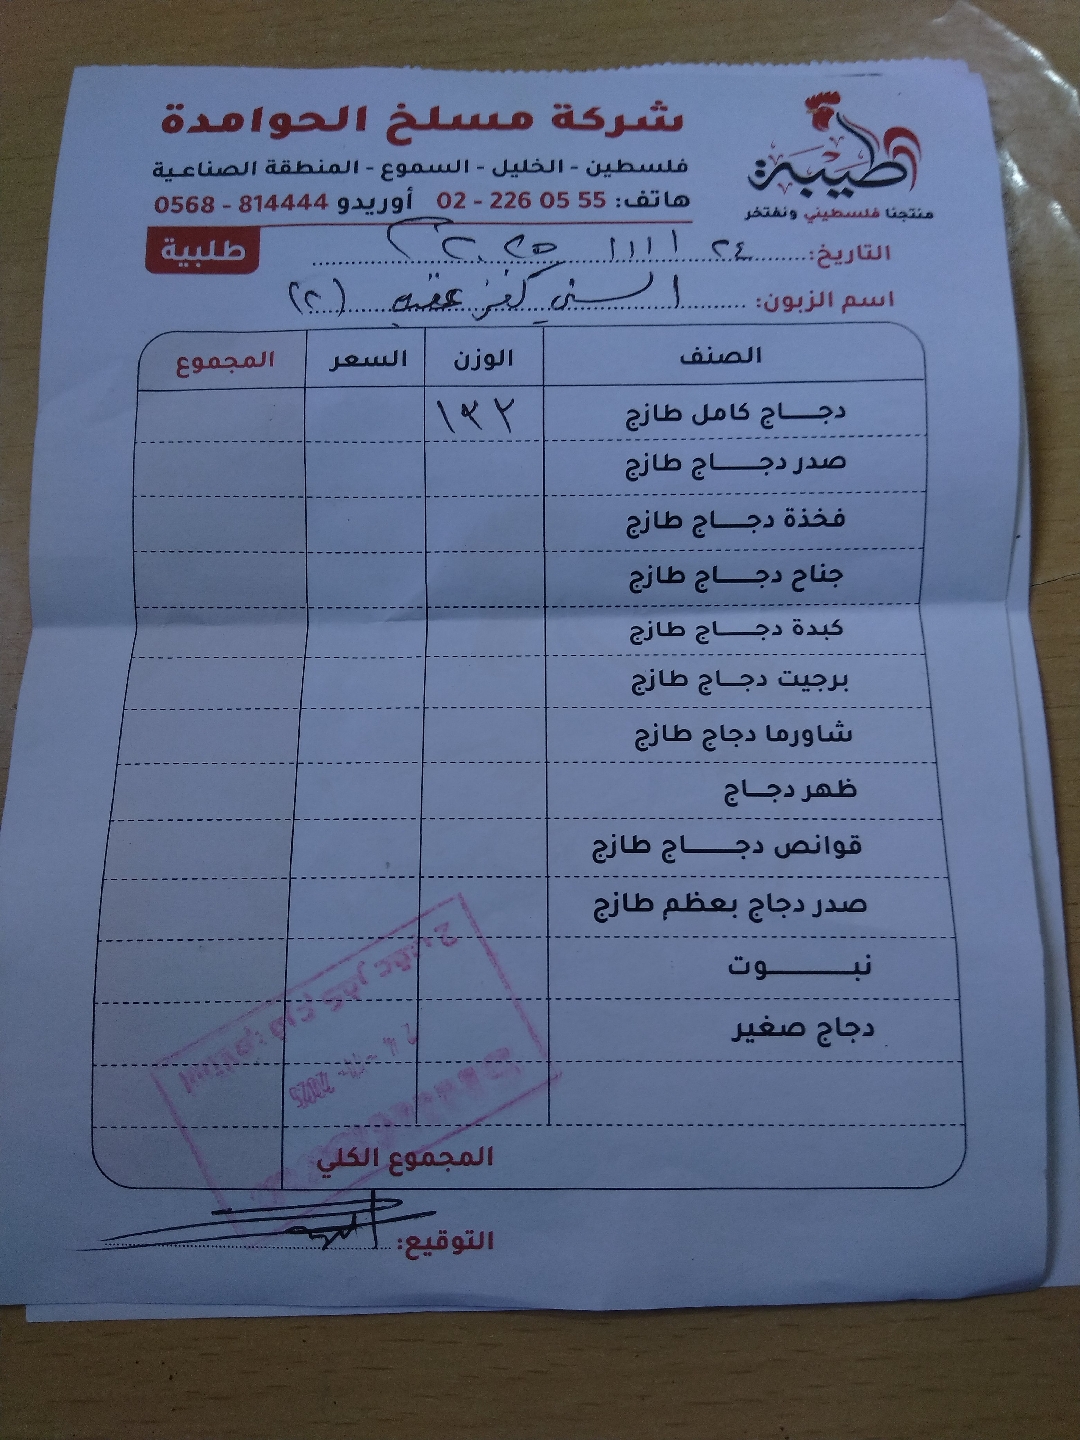 شركة مسلخ الحوامدة
فلسطين - الخليل - السموع - المنطقة الصناعية
هاتف: 55 05 226 - 02 أوريدو 814444 - 0568
طيبة
منتجنا فلسطيني ونفتخر
طلبية
التاريخ: ٢٤ / ١١ / ٢٠٢٥
اسم الزبون: السني كفر عقب (٢)
الصنف الوزن السعر المجموع
دجاج كامل طازج ١٣٢
صدر دجاج طازج
فخذة دجاج طازج
جناح دجاج طازج
كبدة دجاج طازج
برجيت دجاج طازج
شاورما دجاج طازج
ظهر دجاج
قوانص دجاج طازج
صدر دجاج بعظم طازج
نبوت
دجاج صغير
استلام: فرع كفر عقب 2
24 -11- 2025
المجموع الكلي
التوقيع: